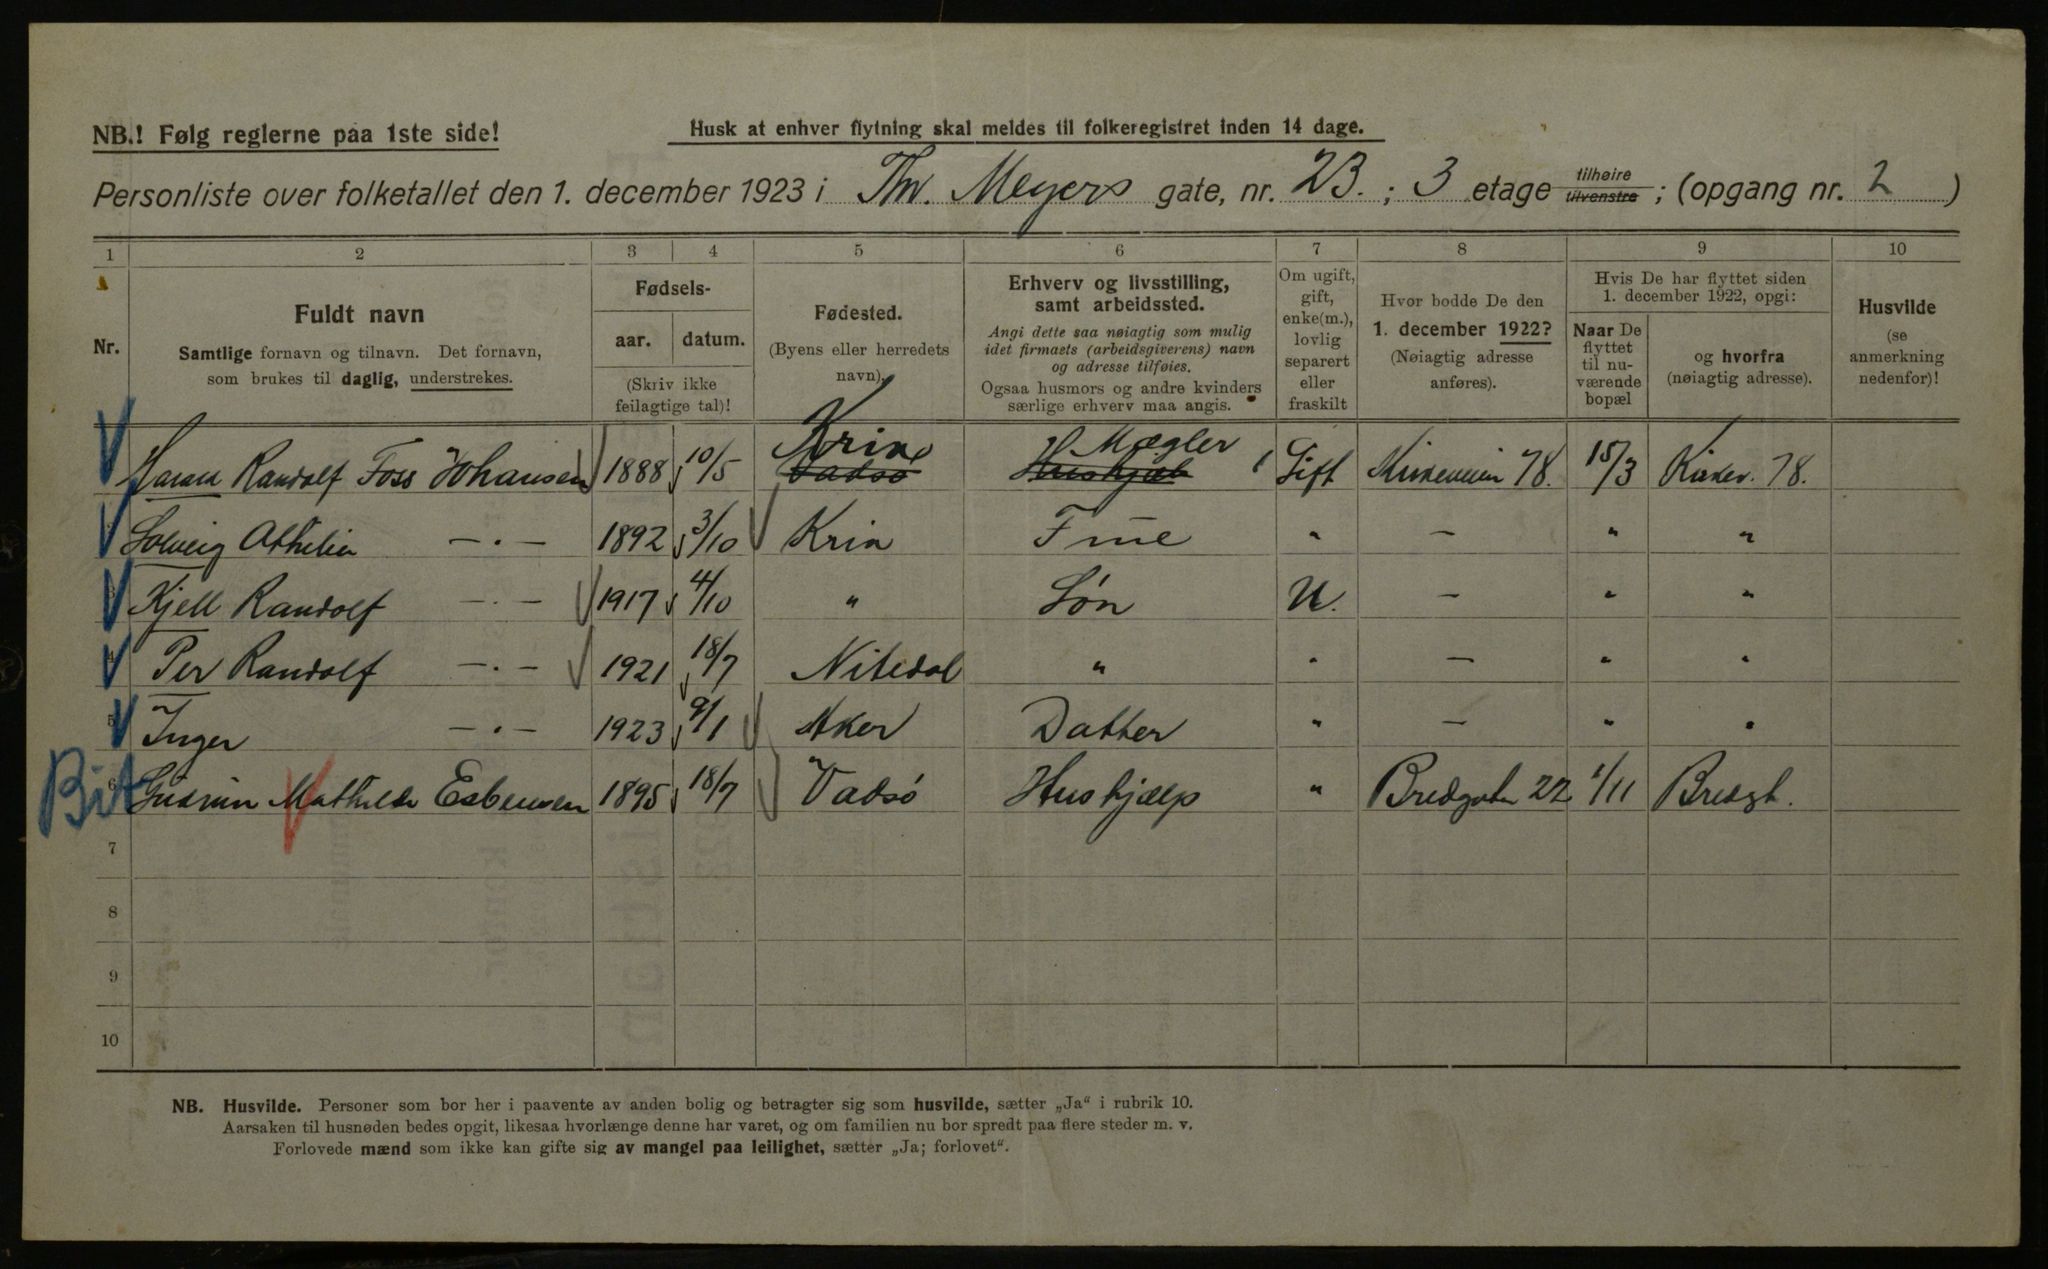 NB.! Følg reglerne paa 1ste side!
Husk at enhver flytning skal meldes til folkeregistret inden 14 dage.
Personliste over folketallet den 1. december 1923 i Thv. Meyers gate, nr. 23. ; 3 etage tilhøire tilvenstre ; (opgang nr. 2 )
1 2 3 4 5 6 7 8 9 10
Nr.
Fuldt navn
Samtlige fornavn og tilnavn. Det fornavn,
som brukes til daglig, understrekes.
Fødsels-
aar. datum.
(Skriv ikke
feilagtige tal)!
Fødested.
(Byens eller herredets
navn).
Erhverv og livsstilling,
samt arbeidssted.
Angi dette saa nøiagtig som mulig
idet firmaets (arbeidsgiverens) navn
og adresse tilføies.
Ogsaa husmors og andre kvinders
særlige erhverv maa angis.
Om ugift,
gift,
enke(m.),
lovlig
separert
eller
fraskilt
Hvor bodde De den
1. december 1922?
(Nøiagtig adresse
anføres).
Hvis De har flyttet siden
1. december 1922, opgi:
Naar De
flyttet
til nu-
værende
bopæl
og hvorfra
(nøiagtig adresse).
Husvilde
(se
anmerkning
nedenfor)!
Kria Mægler
Harald Randolf Foss Johansen 1888 10/5 Vadsø Gift Kirkeveien 78. 15/3 Kirkev. 78.
2 Solveig Athelia —"— 1892 3/10 Kria Frue " — " "
3 Kjell Randolf —"— 1917 4/10 " Søn U. — " "
4 Per Randolf —"— 1921 18/7 Nitedal " " — " "
5 Inger —"— 1923 9/1 Aker Datter " — " "
Bit 6 Gudrun Mathilde Esbensen 1895 18/7 Vadsø Hushjælp " Bredgaten 22 1/11 Bredgt.
7
8
9
10
NB. Husvilde. Personer som bor her i paavente av anden bolig og betragter sig som husvilde, sætter „Ja“ i rubrik 10.
Aarsaken til husnøden bedes opgit, likesaa hvorlænge denne har varet, og om familien nu bor spredt paa flere steder m. v.
Forlovede mænd som ikke kan gifte sig av mangel paa leilighet, sætter „Ja; forlovet“.